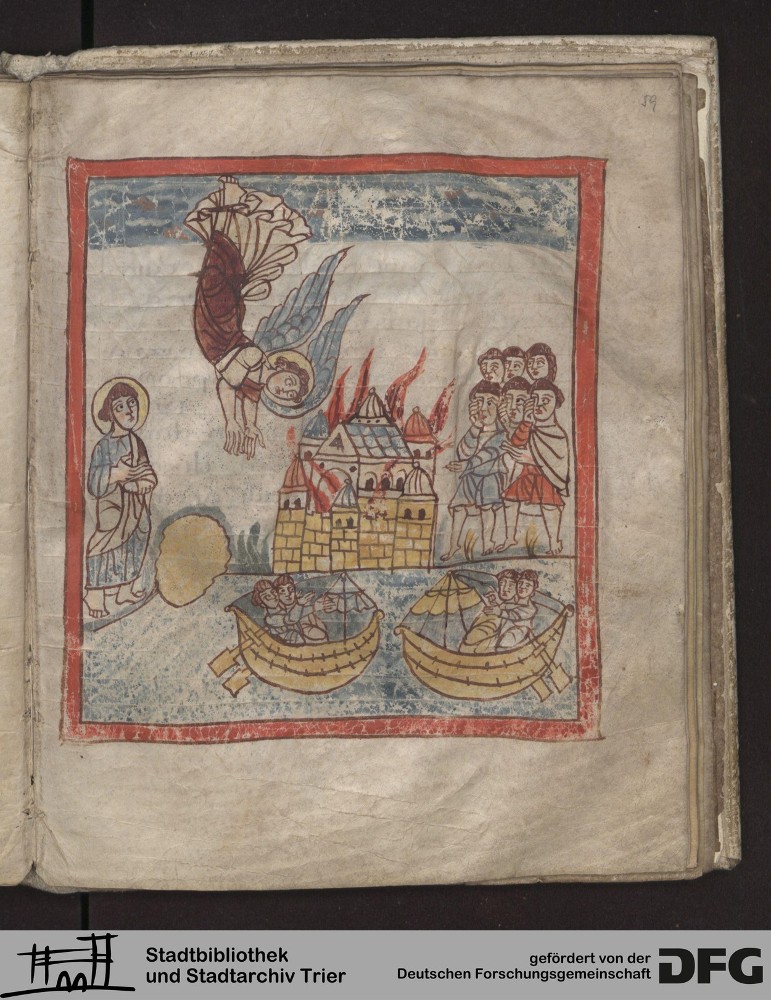 59
Stadtbibliothek
und Stadtarchiv Trier
gefördert von der
Deutschen Forschungsgemeinschaft
DFG